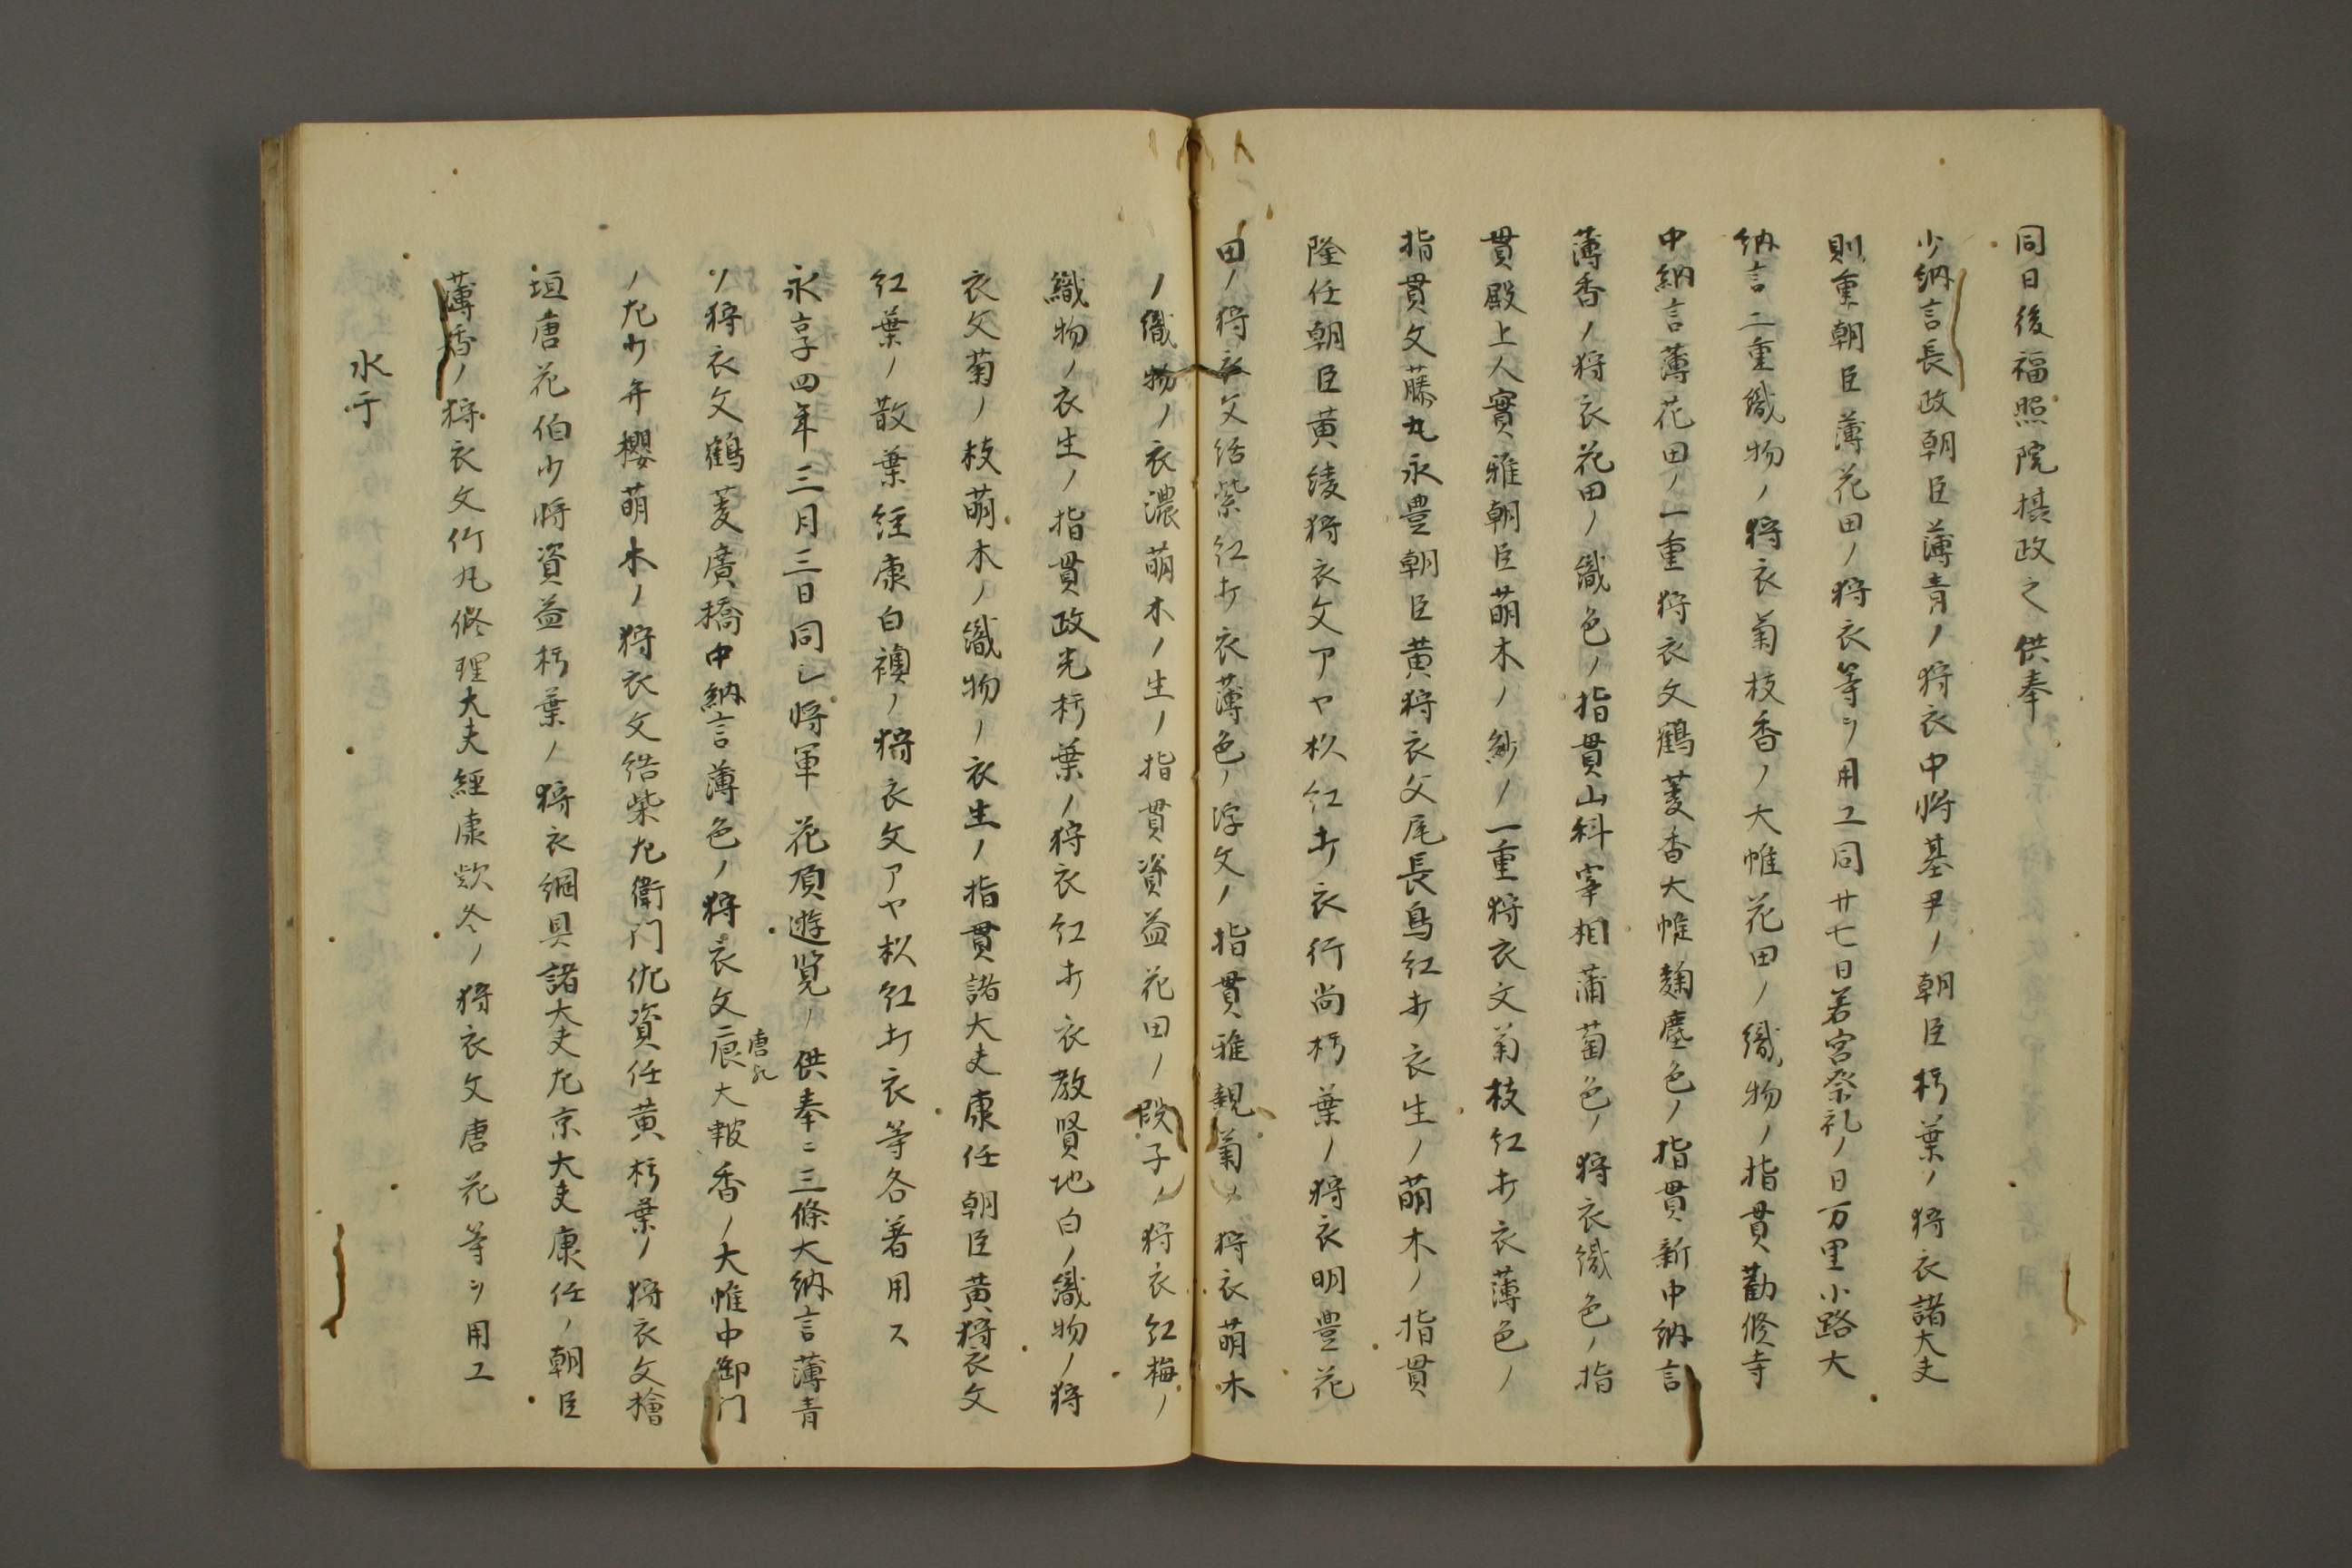 同日後福照院摂政之供奉
少納言長政朝臣薄青ノ狩衣中将基尹ノ朝臣朽葉ノ狩衣諸大夫
則重朝臣薄花田ノ狩衣等ヲ用エ同廿七日若宮祭礼ノ日万里小路大
納言二重織物ノ狩衣菊枝香ノ大帷花田ノ織物ノ指貫勧修寺
中納言薄花田ノ一重狩衣文鶴菱香大帷麹塵色ノ指貫新中納言
薄香ノ狩衣花田ノ織色ノ指貫山科宰相蒲萄色ノ狩衣織色ノ指
貫殿上人實雅朝臣萌木ノ紗ノ一重狩衣文菊枝紅打衣薄色ノ
指貫文藤丸永豊朝臣黄狩衣文尾長鳥紅打衣生ノ萌木ノ指貫
隆任朝臣黄綾狩衣文アヤ杦紅打衣行尚朽葉ノ狩衣明豊花
田ノ狩衣文結紫紅打衣薄色ノ浮文ノ指貫雅親菊ノ狩衣萌木
ノ織物ノ衣濃萌木ノ生ノ指貫資益花田ノ段子ノ狩衣紅梅ノ
織物ノ衣生ノ指貫政光朽葉ノ狩衣紅打衣教賢地白ノ織物ノ狩
衣文菊ノ枝萌木ノ織物ノ衣生ノ指貫諸大夫康任朝臣黄狩衣文
紅葉ノ散葉経康白襖ノ狩衣文アヤ杦紅打衣等各著用ス
永享四年三月三日同シ将軍花頂遊覧ノ供奉ニ三條大納言薄青
ソ狩衣文鶴菱廣橋中納言薄色ノ狩衣文唐丸大帔香ノ大帷中御门
ノ左少弁櫻萌木ノ狩衣文結柴左衛门佐資任黄朽葉ノ狩衣文檜
垣唐花伯少将資益朽葉ノ狩衣綱具諸大夫左京大夫康任ノ朝臣
薄香ノ狩衣文竹丸修理大夫経康欵冬ノ狩衣文唐花等ヲ用エ
水干